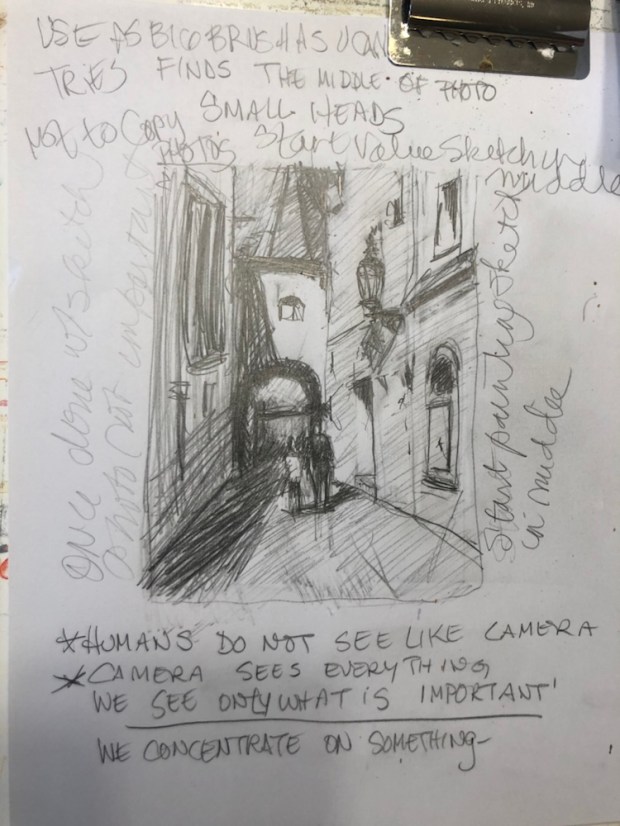 USE AS BIG BRUSH AS U CAN
TRIES FINDS THE MIDDLE OF PHOTO
SMALL HEADS
NOT to Copy PHOTO'S Start Value Sketch in middle
Once done w/ sketch
photo not important
Start painting/sketch
in middle
*HUMANS DO NOT SEE LIKE CAMERA
*CAMERA SEES EVERYTHING
WE SEE ONLY WHAT IS IMPORTANT'
WE CONCENTRATE ON SOMETHING-